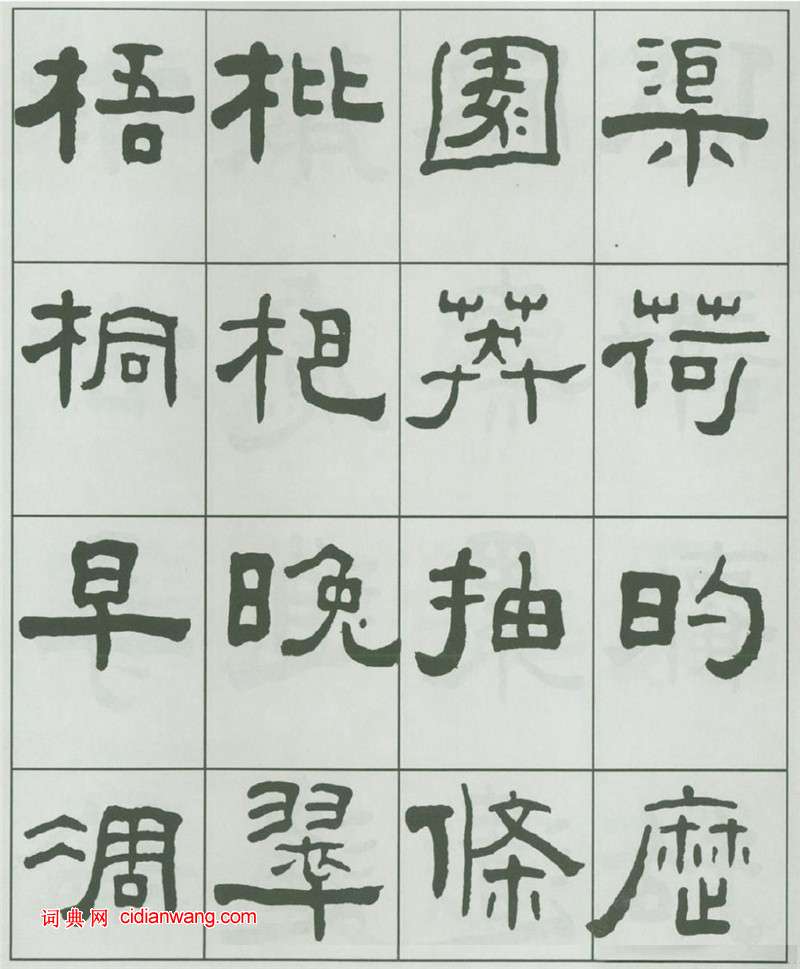 渠荷的歷
園莽抽條
枇杷晚翠
梧桐早凋
词典网 cidianwang.com